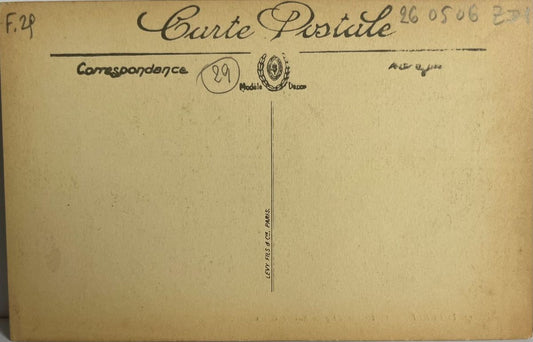 F. 2f
Carte Postale
26 05 06
Correspondance
29
Modèle
LÉVY FILS & Cie, PARIS.